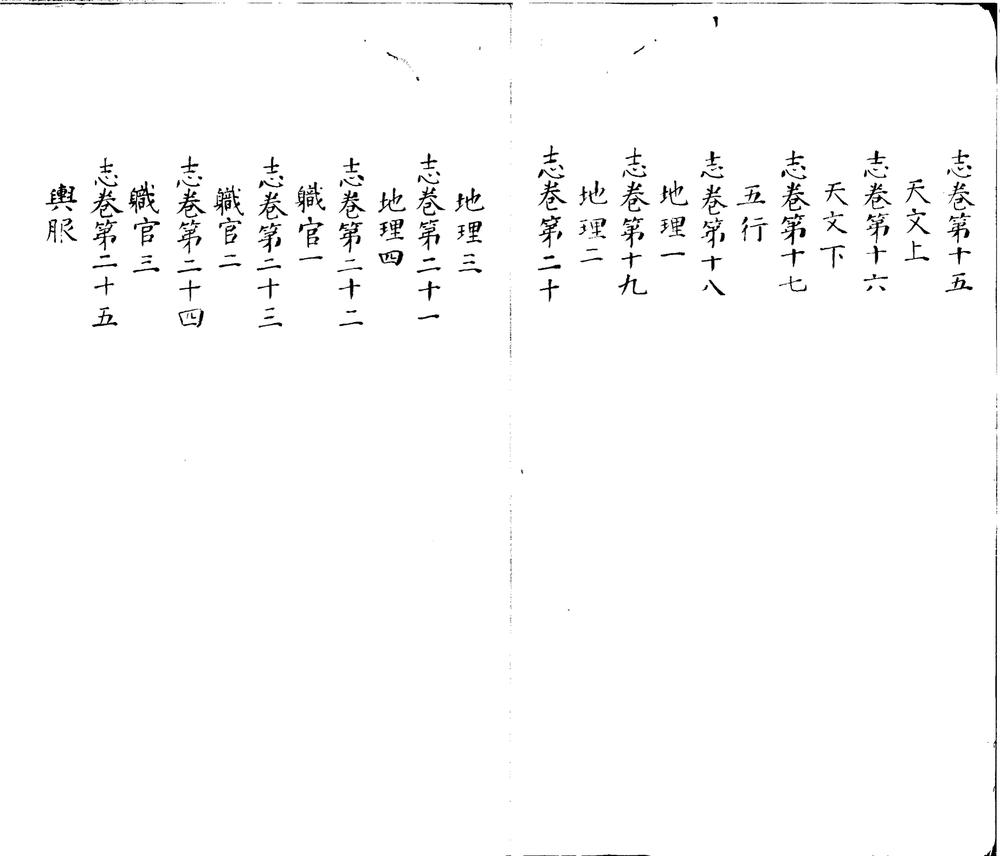 志卷第十五
天文上
志卷第十六
天文下
志卷第十七
五行
志卷第十八
地理一
志卷第十九
地理二
志卷第二十
地理三
志卷第二十一
地理四
志卷第二十二
職官一
志卷第二十三
職官二
志卷第二十四
職官三
志卷第二十五
輿服